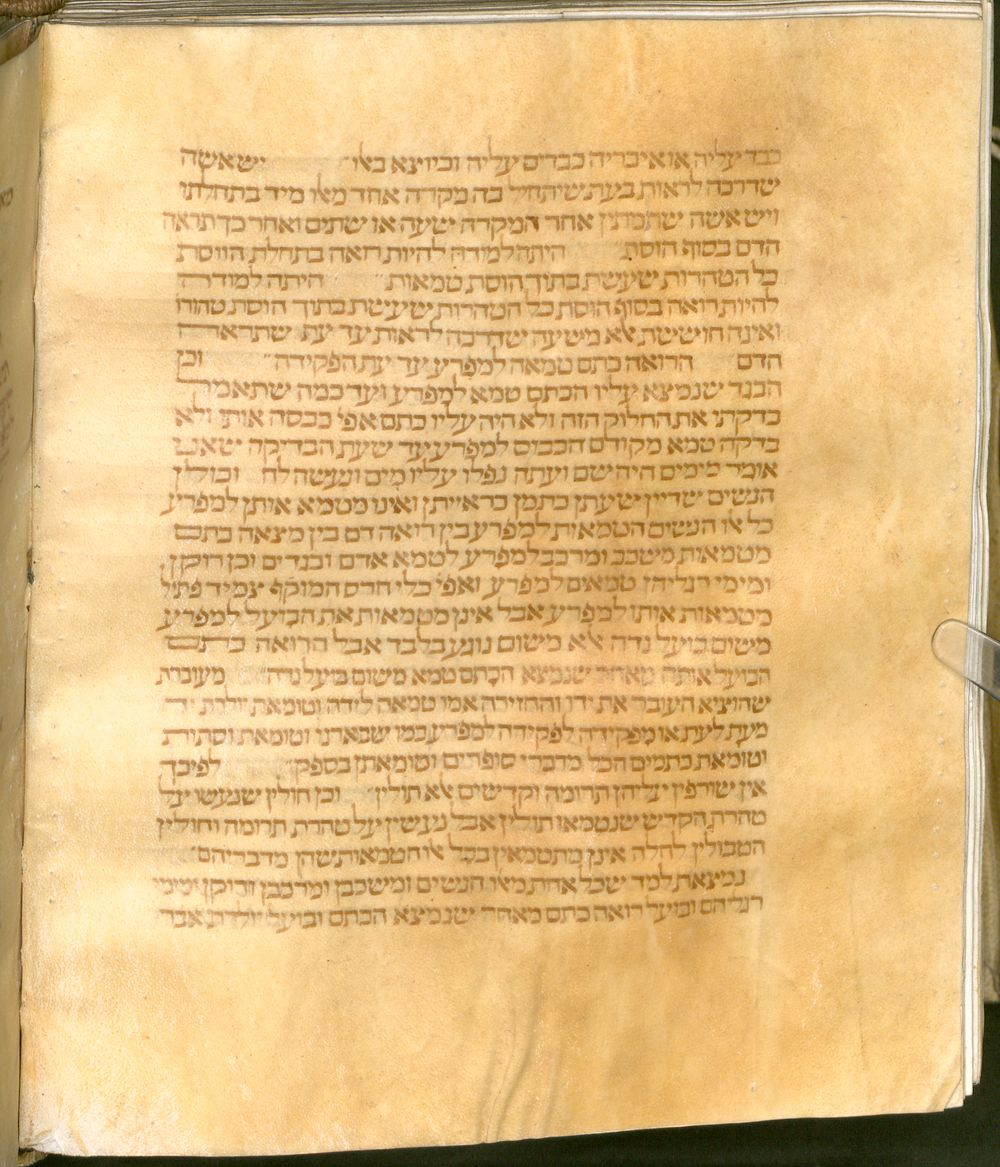 כבד עליה או איבריה כבדים עליה וכיוצא באלו יש אשה
שדרכה לראות בעת שיתחיל בה מקרה אחד מאלו מיד בתחלתו
ויש אשה שתמתין אחר המקרה שעה או שתים ואחר כך תראה
הדם בסוף הוסת היתה למודה להיות רואה בתחלת הווסת
כל הטהרות שעשת בתוך הוסת טמאות היתה למודה
להיות רואה בסוף הוסת כל הטהרות שעשת בתוך הוסת טהורות
ואינה חוששת אלא משעה שדרכה לראות עד עת שתראה
הדם הרואה כתם טמאה למפרע עד עת הפקידה וכן
הבגד שנמצא עליו הכתם טמא למפרע ועד כמה שתאמר
בדקתי את החלוק הזה ולא היה עליו כתם אפי' כבסה אותו ולא
בדקה טמא מקודם הכבוס למפרע עד שעת הבדיקה שאני
אומר מימים היה שם ועתה נפלו עליו מים ונעשה לח וכולן
הנשים שדיין שעתן כתמן כראייתן ואינו מטמא אותן למפרע
כל אלו הנשים הטמאות למפרע בין רואה דם בין מצאה כתם
מטמאות משכב ומרכב למפרע לטמא אדם ובגדים וכן רוקן
ומימי רגליהן טמאים למפרע ואפי' כלי חרס המוקף צמיד פתיל
מטמאות אותו למפרע אבל אינן מטמאות את הבועל למפרע
משום בועל נדה אלא משום נוגע בלבד אבל הרואה כתם
הבועל אותה מאחר שנמצא הכתם טמא משום בועל נדה מעוברת
שהוציא העובר את ידו והחזירה אמו טמאה לידה וטומאת יולדת זו
מעת לעת או מפקידה לפקידה למפרע כמו שבארנו וטומאת וסתות
וטומאת כתמים הכל מדברי סופרים וטומאתן בספק לפיכך
אין שורפין עליהן תרומה וקדשים אלא תולין וכן חולין שנעשו על
טהרת הקדש שנטמאו תולין אבל נעשין על טהרת תרומה וחולין
הטבולין לחלה אינן מתטמאין בכל אלו הטמאות שהן מדבריהם
נמצאת למד שכל אחת מאלו הנשים ומשכבן ומרכבן ורוקן ומימי
רגליהם ובועל רואה כתם מאחר שנמצא הכתם ובועל יולדת אבר